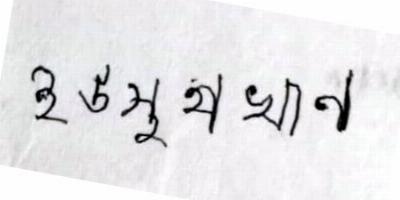 ইউসুফ খান